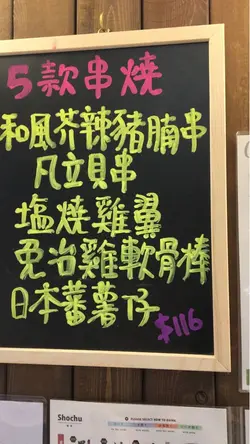 5款串燒
和風芥辣豬腩串
凡立貝串
塩燒雞翼
免治雞軟骨棒
日本蕃薯仔
$116
Shochu